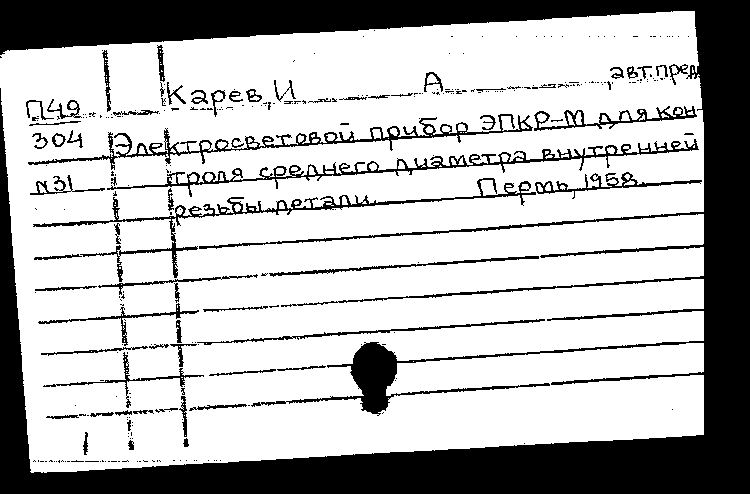 П49 Карев, И А , авт. пред
304 Электросветовой прибор ЭПКР-М для кон-
N31 троля среднего диаметра внутренней
резьбы детали. Пермь, 1958.
1